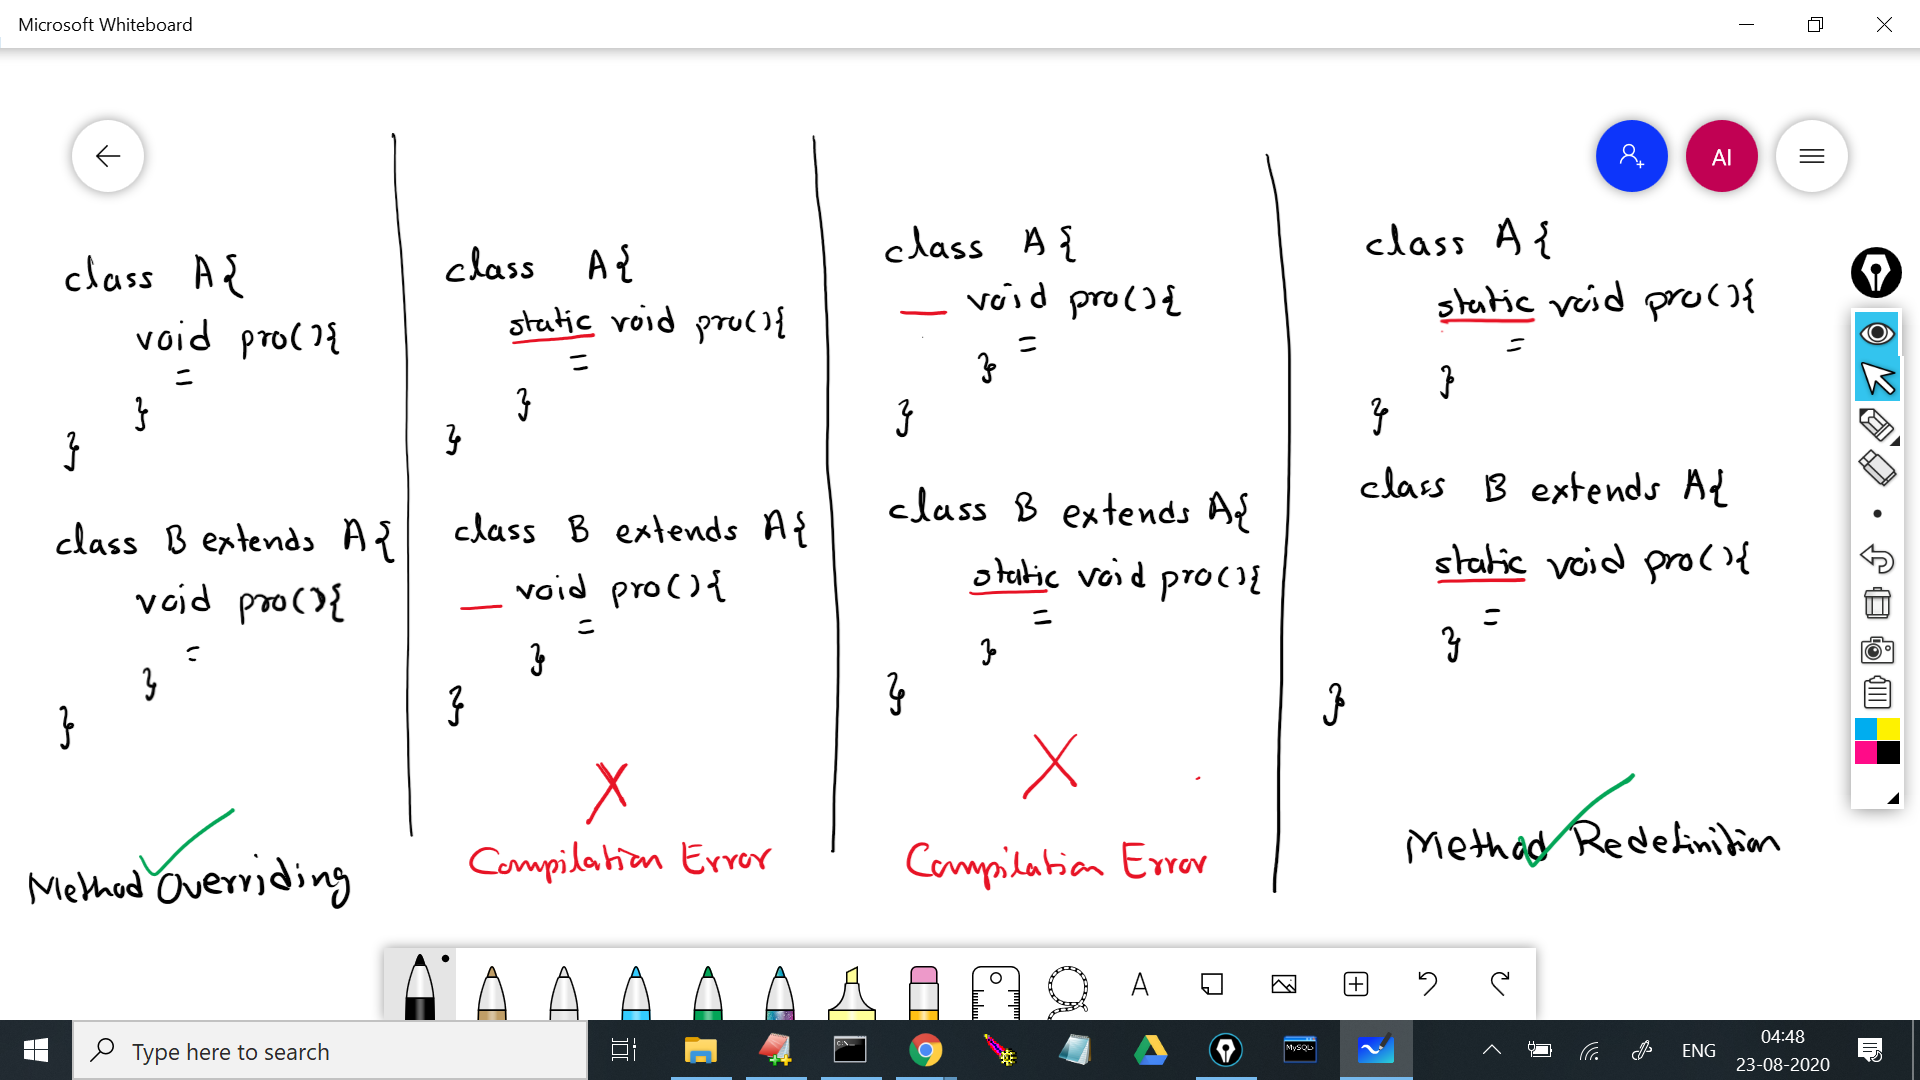 Microsoft Whiteboard
AI
class A{
void pro(){
=
}
}
class B extends A{
void pro(){
=
}
}
Method Overriding
class A{
static void pro(){
=
}
}
class B extends A{
void pro(){
=
}
}
X
Compilation Error
class A{
void pro(){
=
}
}
class B extends A{
static void pro(){
=
}
}
X
Compilation Error
class A{
static void pro(){
=
}
}
class B extends A{
static void pro(){
=
}
}
Method Redefinition
A
Type here to search
MySQL
ENG
04:48
23-08-2020